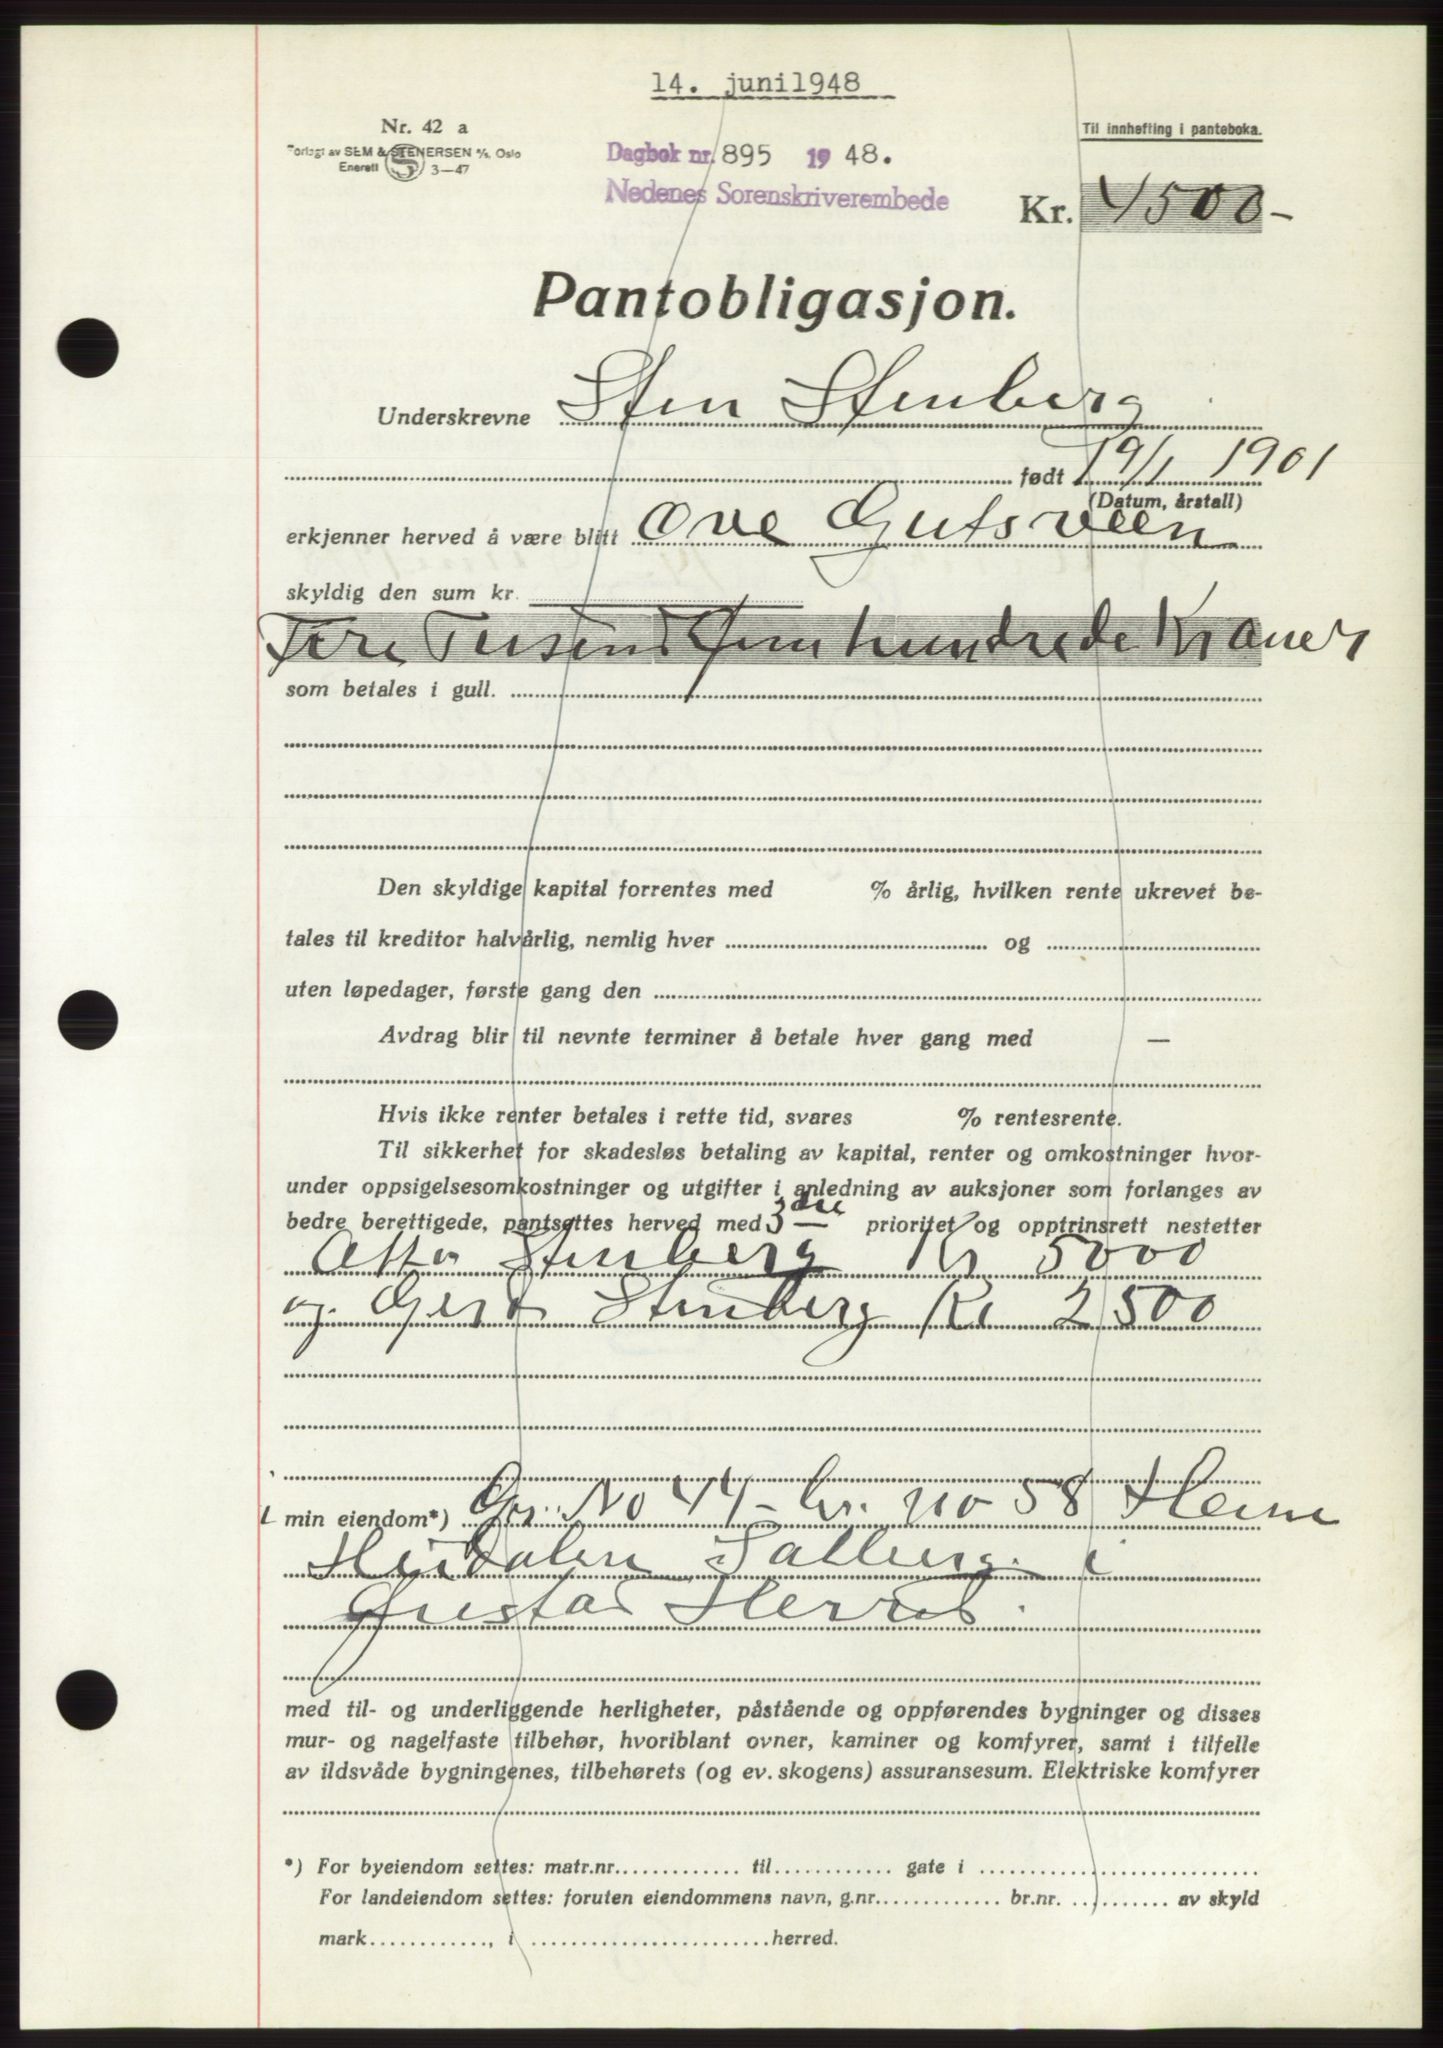 14. juni 1948
Nr. 42 a
Forlagt av SEM & STENERSEN A/S, Oslo
Enerett S 3—47
Til innhefting i panteboka.
Dagbok nr. 895 1948.
Nedenes Sorenskriverembede
Kr. 4500-
Pantobligasjon.
Underskrevne Sten Stenberg
født 19/1 1901
(Datum, årstall)
erkjenner herved å være blitt Ove Gutsveen
skyldig den sum kr.
Fire Tusend fem hundrede Kroner
som betales i gull.
Den skyldige kapital forrentes med % årlig, hvilken rente ukrevet be-
tales til kreditor halvårlig, nemlig hver og
uten løpedager, første gang den
Avdrag blir til nevnte terminer å betale hver gang med —
Hvis ikke renter betales i rette tid, svares % rentesrente.
Til sikkerhet for skadesløs betaling av kapital, renter og omkostninger hvor-
under oppsigelsesomkostninger og utgifter i anledning av auksjoner som forlanges av
bedre berettigede, pantsettes herved med 3dre prioritet og opptrinsrett nestetter
Stenberg Kr 5000
og Gerd Stenberg Kr 2500
i min eiendom*) Gr. No 44 - br. no 58 Heim
i
Gustav
med til- og underliggende herligheter, påstående og oppførendes bygninger og disses
mur- og nagelfaste tilbehør, hvoriblant ovner, kaminer og komfyrer, samt i tilfelle
av ildsvåde bygningenes, tilbehørets (og ev. skogens) assuransesum. Elektriske komfyrer
*) For byeiendom settes: matr.nr. til gate i
For landeiendom settes: foruten eiendommens navn, g.nr. br.nr. av skyld
mark , i herred.